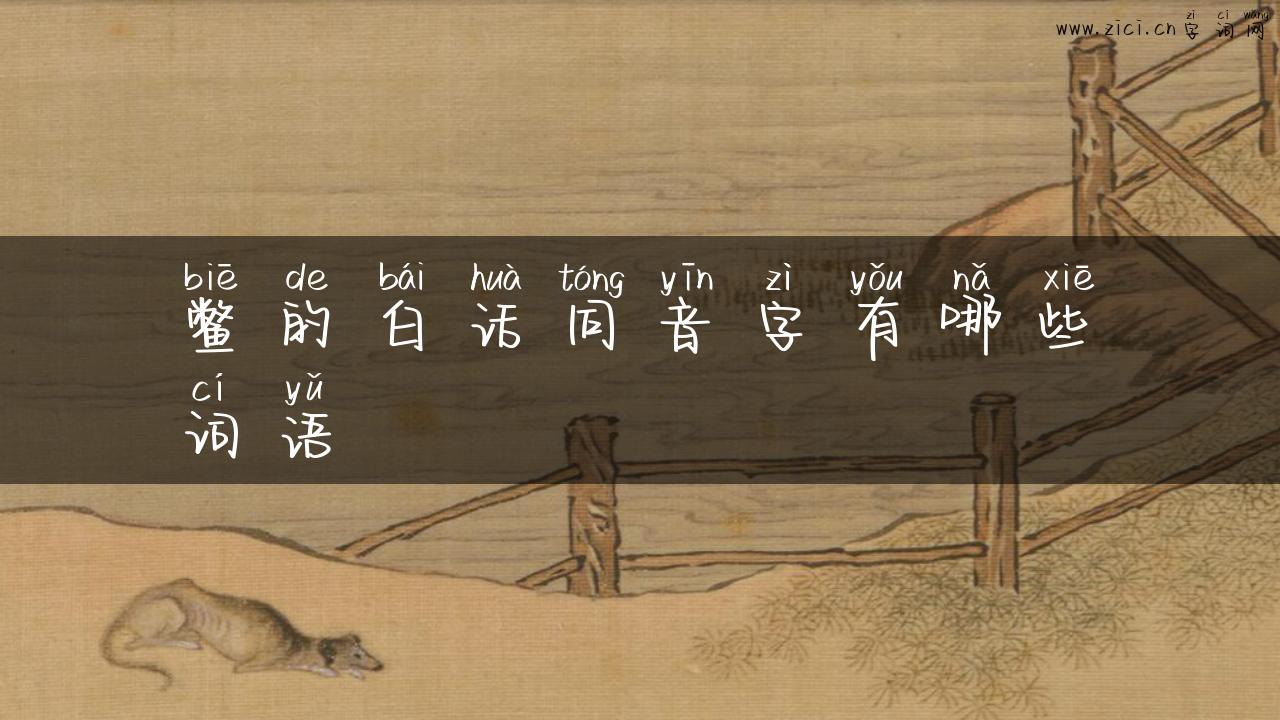 zì cí wǎng
www.zici.cn 字 词 网
biē de bái huà tóng yīn zì yǒu nǎ xiē
鳖 的 白 话 同 音 字 有 哪 些
cí yǔ
词 语